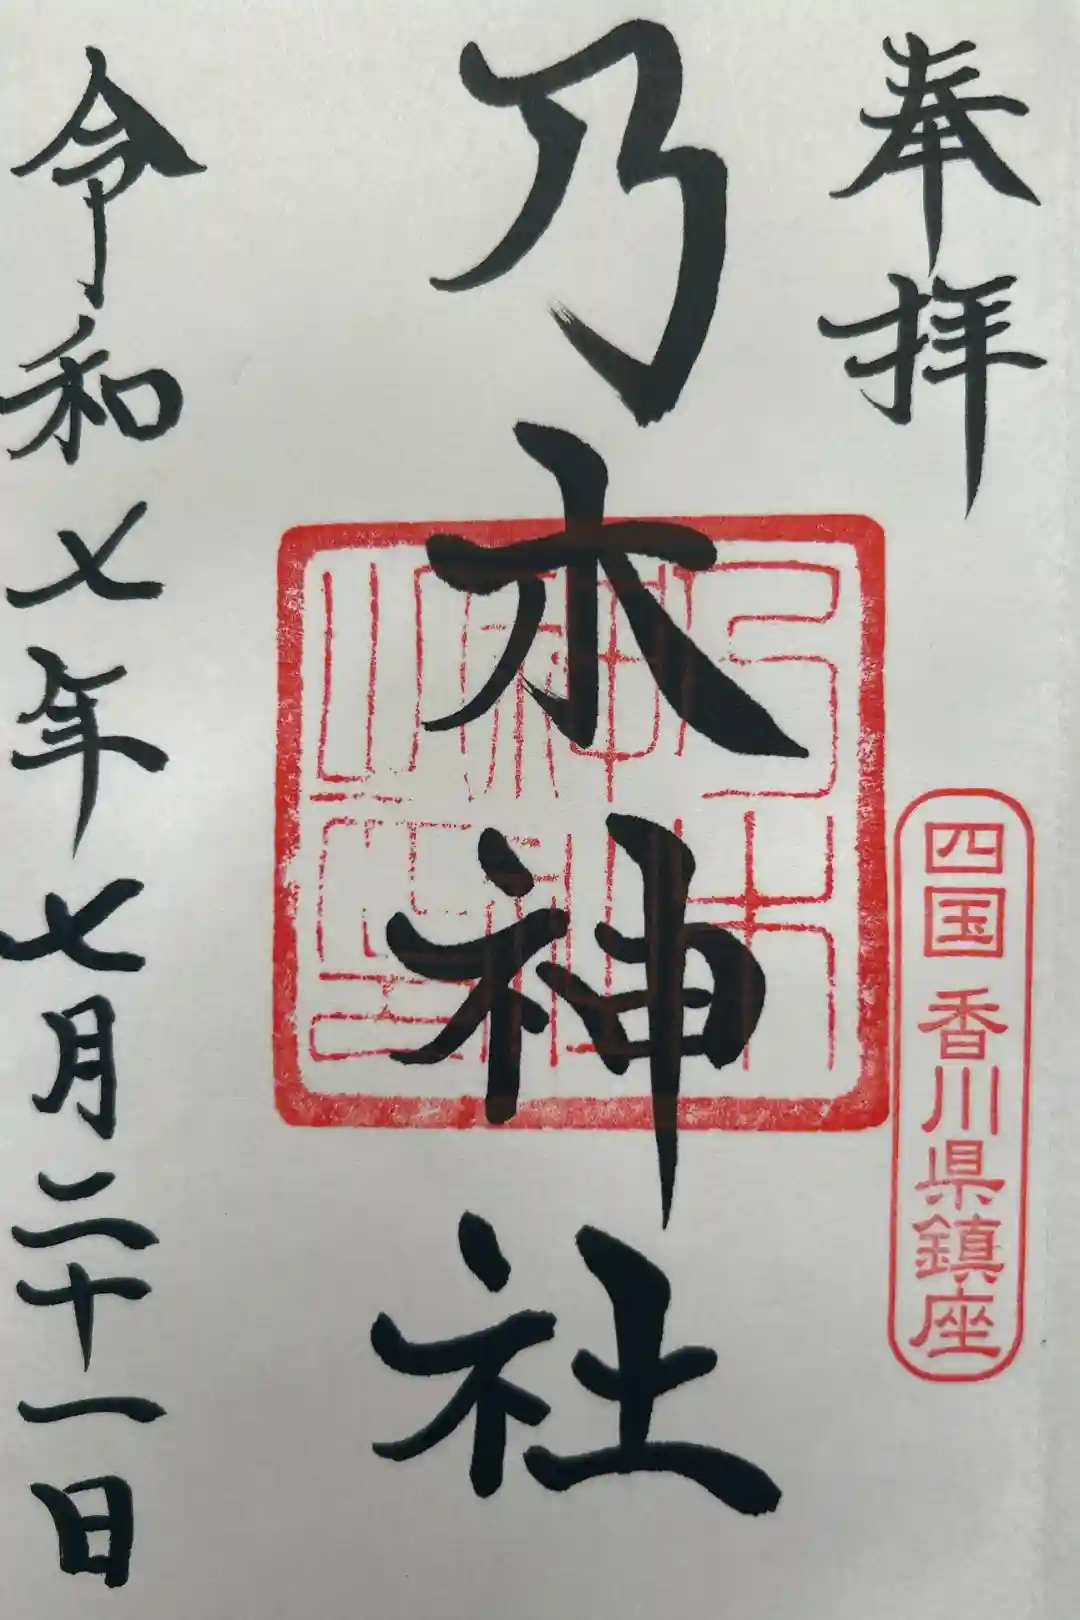 奉拝
四国 香川県鎮座
乃木神社
令和七年七月二十一日